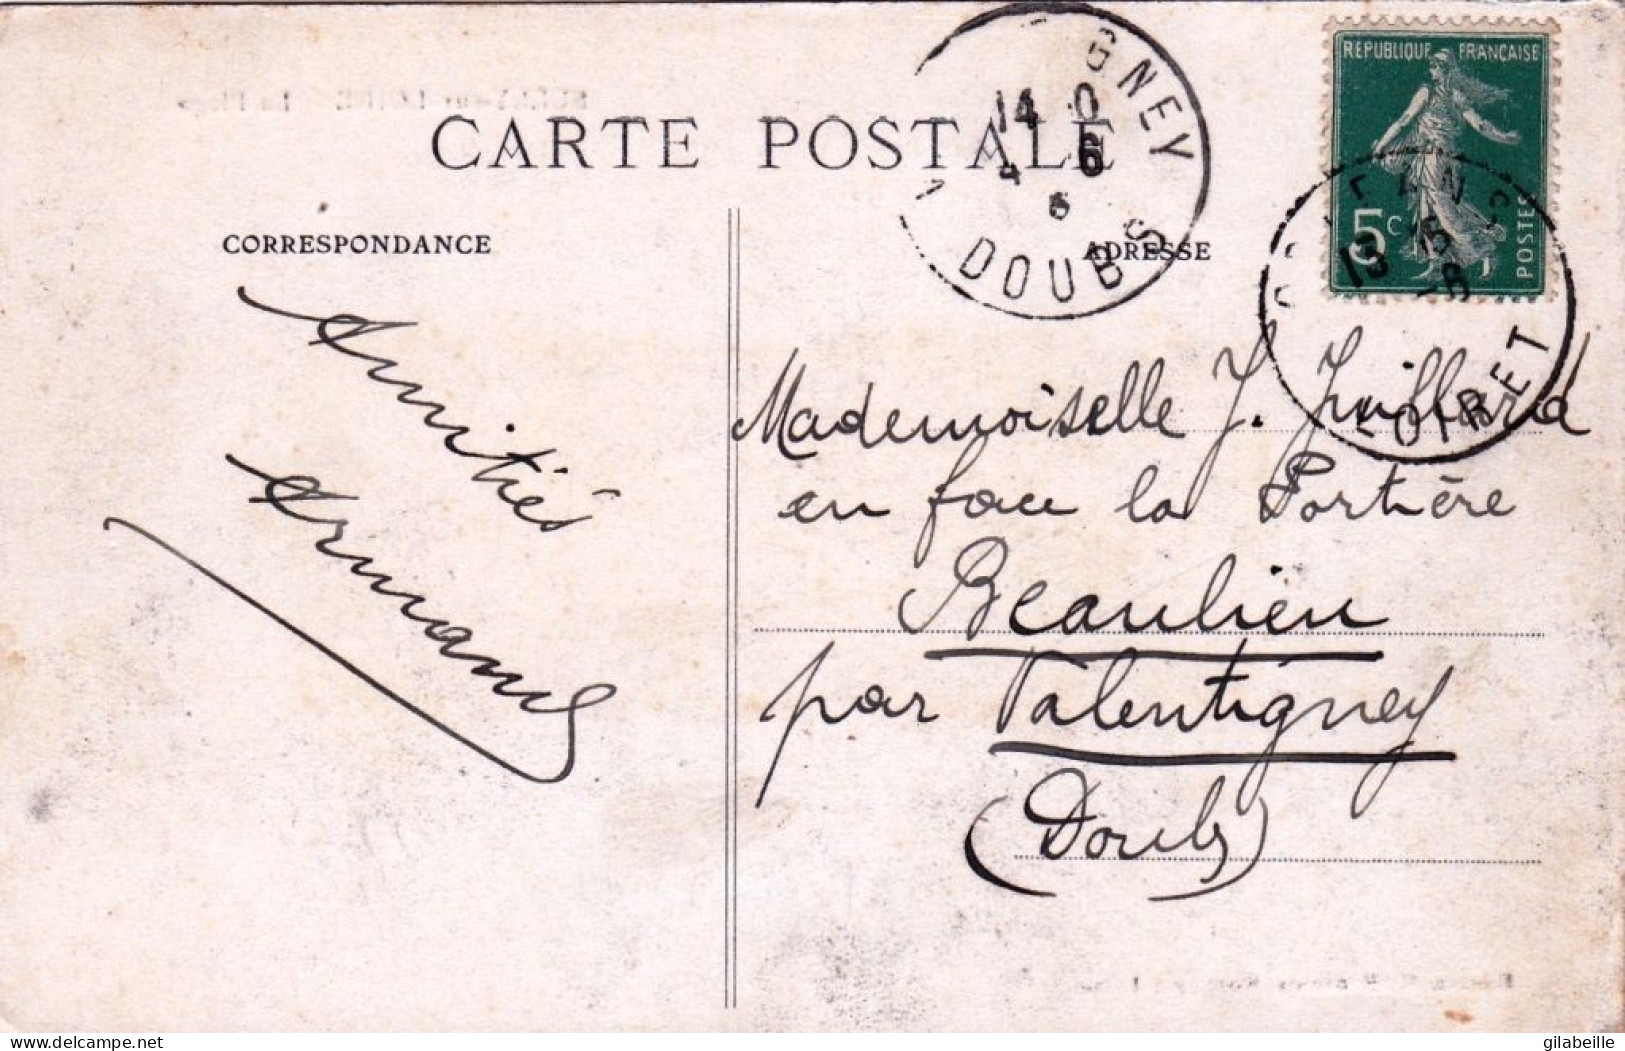 CARTE POSTALE
CORRESPONDANCE
ADRESSE
RÉPUBLIQUE FRANÇAISE
5c
POSTES
GNEY
14
DOUBS
13
LOIRET
Amitiés
Armand
Mademoiselle J. Juillard
en face la Portière
Beaulieu
par Valentigney
(Doubs)
delcampe.net
gilabeille